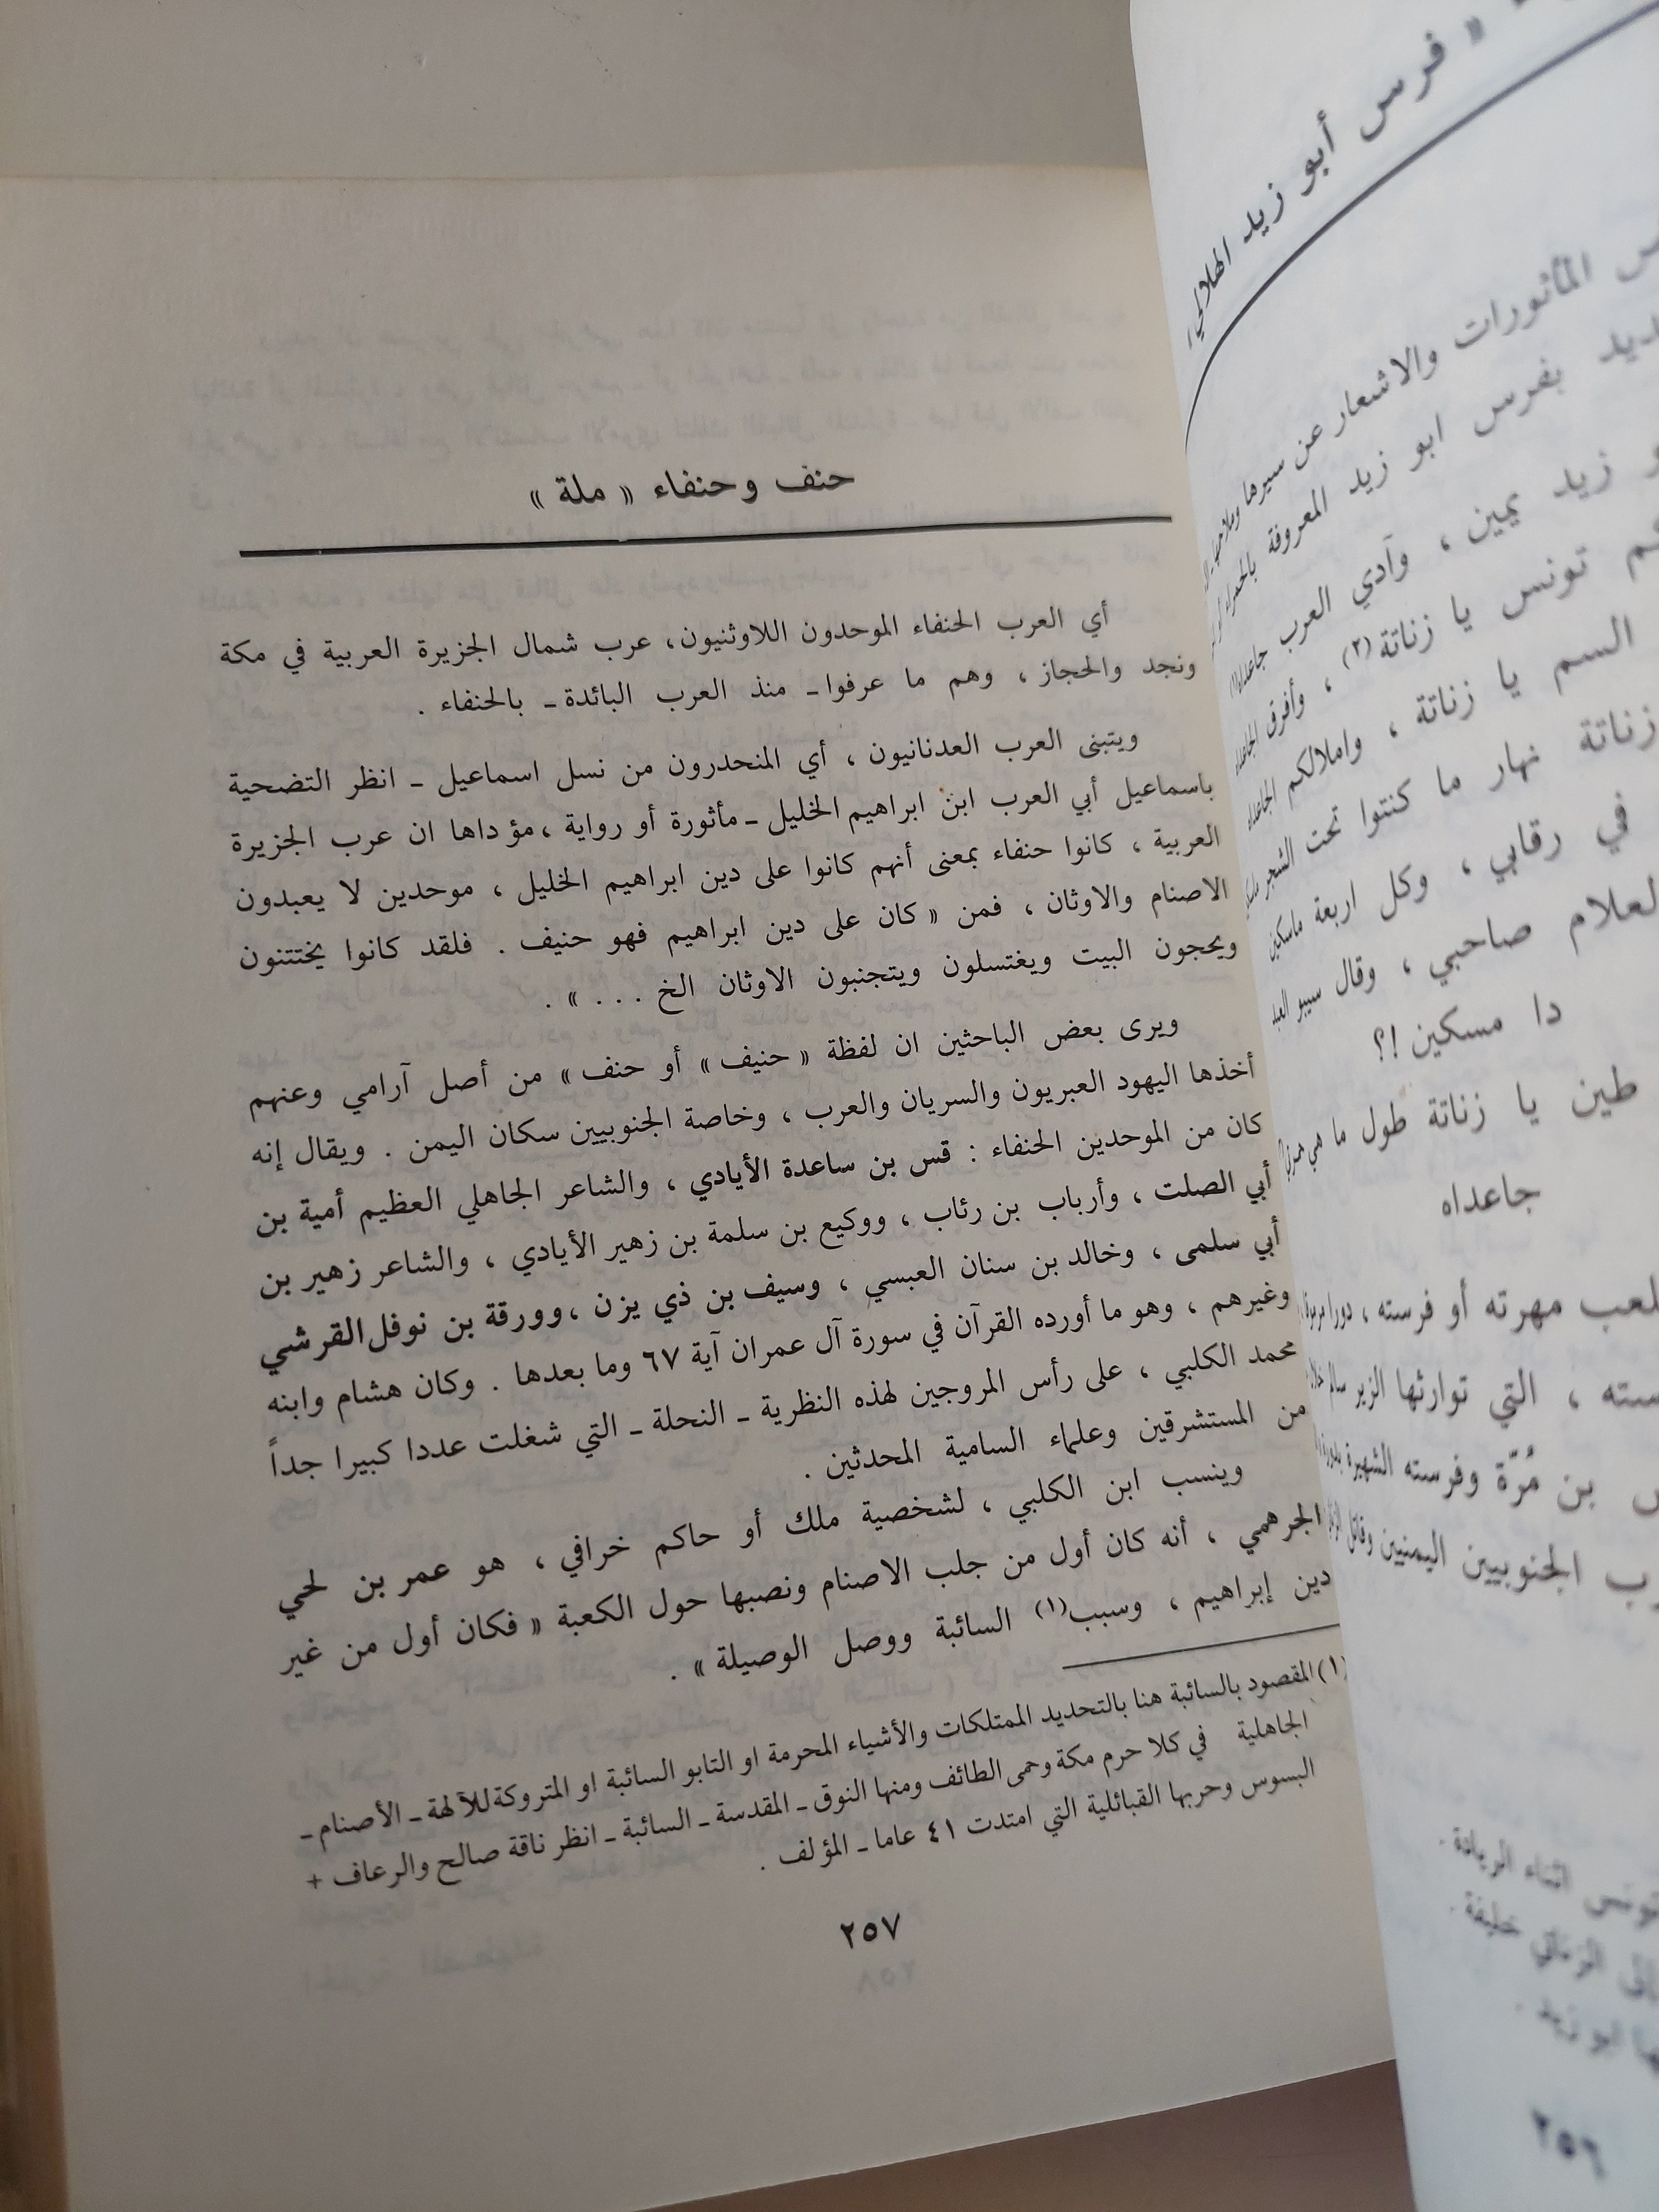 « فرس أبو زيد الهلالي
المأثورات والاشعار عن سيرها
بفرس ابو زيد المعروفة
زيد يمين ، وآدي العرب جاعداه
تونس يا زناتة (٢) ، وأفرق
السم يا زناتة ، واملالكم
زناتة نهار ما كنتوا تحت الشجر
في رقابي ، وكل اربعة ماسكين
صاحبي ، وقال
دا مسكين !؟
طين يا زناتة طول ما هي
جاعداه
مهرته أو فرسته ،
، التي توارثها الزير سالم
بن مُرّة وفرسته الشهيرة
الجنوبيين اليمنيين
اثناء الريادة .
الزناتي خليفة .
ابو زيد .
٢٥٦
حنف وحنفاء « ملة »
أي العرب الحنفاء الموحدون اللاوثنيون، عرب شمال الجزيرة العربية في مكة
ونجد والحجاز ، وهم ما عرفوا ـ منذ العرب البائدة ـ بالحنفاء .
ويتبنى العرب العدنانيون ، أي المنحدرون من نسل اسماعيل ـ انظر التضحية
باسماعيل أبي العرب ابن ابراهيم الخليل ـ مأثورة أو رواية ، مؤداها ان عرب الجزيرة
العربية ، كانوا حنفاء بمعنى أنهم كانوا على دين ابراهيم الخليل ، موحدين لا يعبدون
الاصنام والاوثان ، فمن « كان على دين ابراهيم فهو حنيف . فلقد كانوا يختتنون
ويحجون البيت ويغتسلون ويتجنبون الاوثان الخ . . . » .
ويرى بعض الباحثين ان لفظة « حنيف » أو حنف » من أصل آرامي وعنهم
أخذها اليهود العبريون والسريان والعرب ، وخاصة الجنوبيين سكان اليمن . ويقال إنه
كان من الموحدين الحنفاء : قس بن ساعدة الأيادي ، والشاعر الجاهلي العظيم أمية بن
أبي الصلت ، وأرباب بن رئاب ، ووكيع بن سلمة بن زهير الأيادي ، والشاعر زهير بن
أبي سلمى ، وخالد بن سنان العبسي ، وسيف بن ذي يزن ، وورقة بن نوفل القرشي
وغيرهم ، وهو ما أورده القرآن في سورة آل عمران آية ٦٧ وما بعدها . وكان هشام وابنه
محمد الكلبي ، على رأس المروجين لهذه النظرية ـ النحلة ـ التي شغلت عددا كبيرا جداً
من المستشرقين وعلماء السامية المحدثين .
وينسب ابن الكلبي ، لشخصية ملك أو حاكم خرافي ، هو عمر بن لحي
الجرهمي ، أنه كان أول من جلب الاصنام ونصبها حول الكعبة « فكان أول من غير
دين إبراهيم ، وسبب(١) السائبة ووصل الوصيلة » .
(١) المقصود بالسائبة هنا بالتحديد الممتلكات والأشياء المحرمة او التابو السائبة او المتروكة للآلهة ـ الأصنام ـ
الجاهلية في كلا حرم مكة وحمى الطائف ومنها النوق ـ المقدسة ـ السائبة ـ انظر ناقة صالح والرعاف +
البسوس وحربها القبائلية التي امتدت ٤١ عاما ـ المؤلف .
٢٥٧